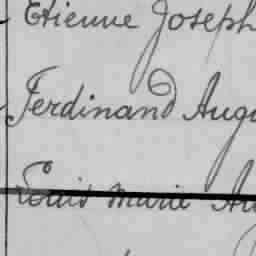 Etienne Joseph
Ferdinand Augu
Louis Marie Au